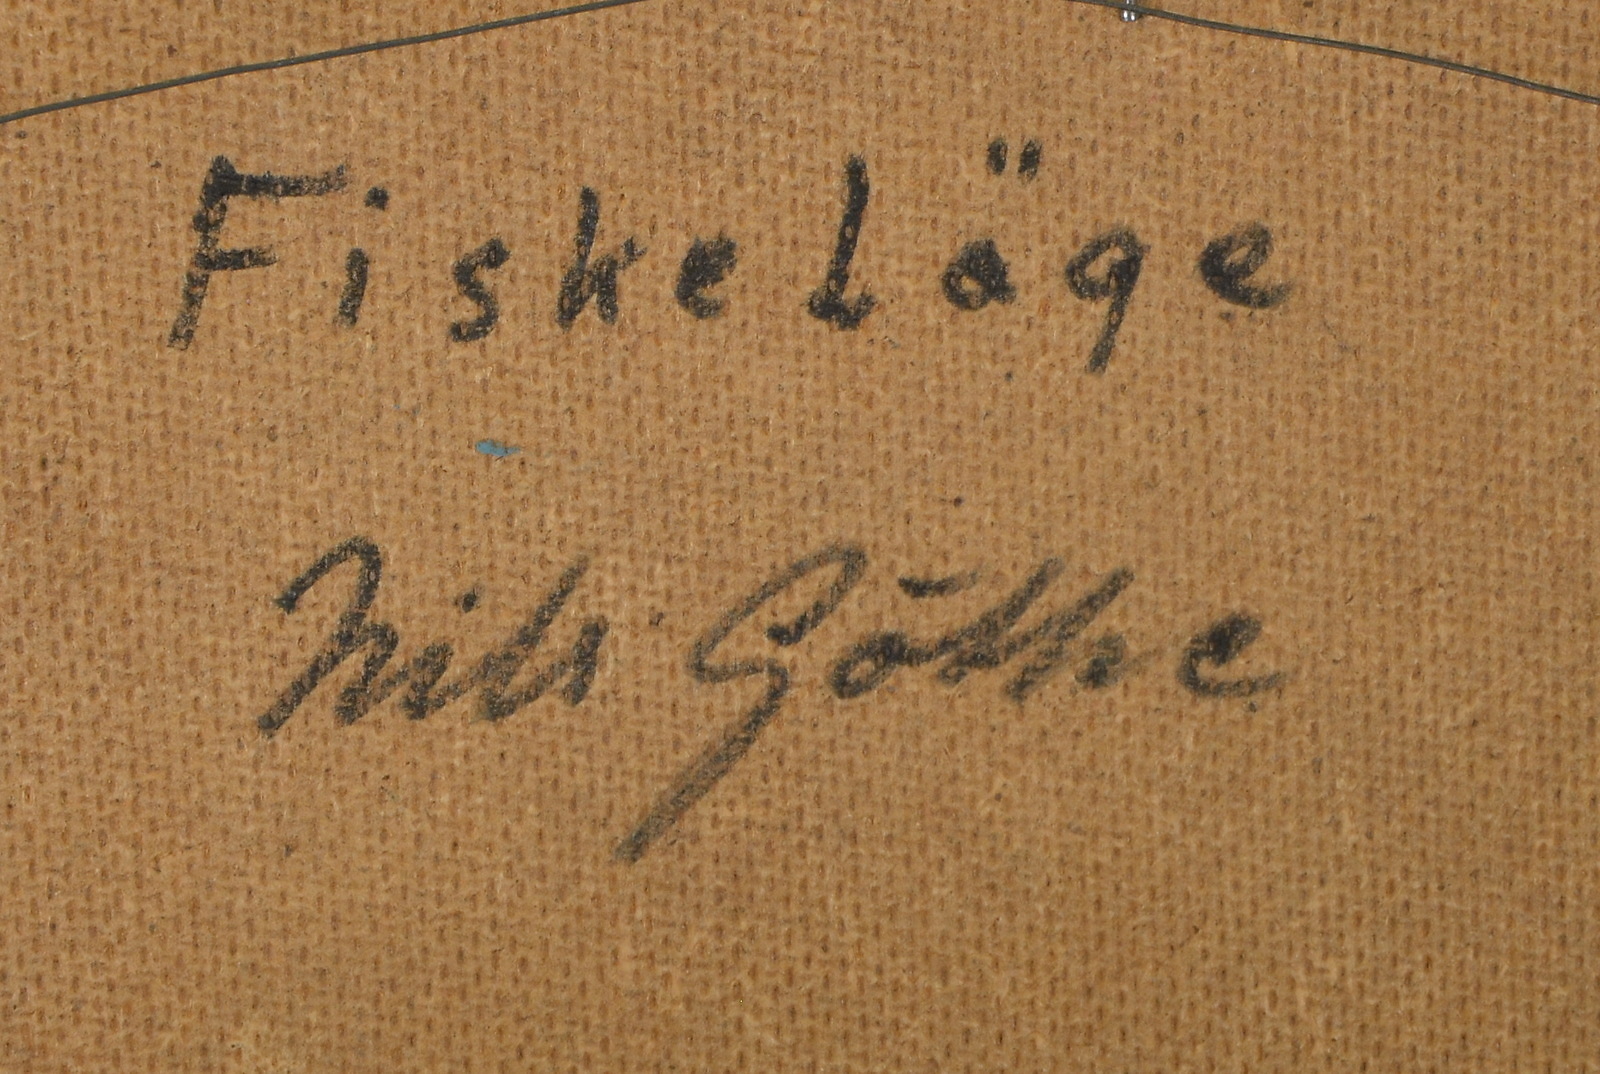 Fiskeläge
Nils Göthe